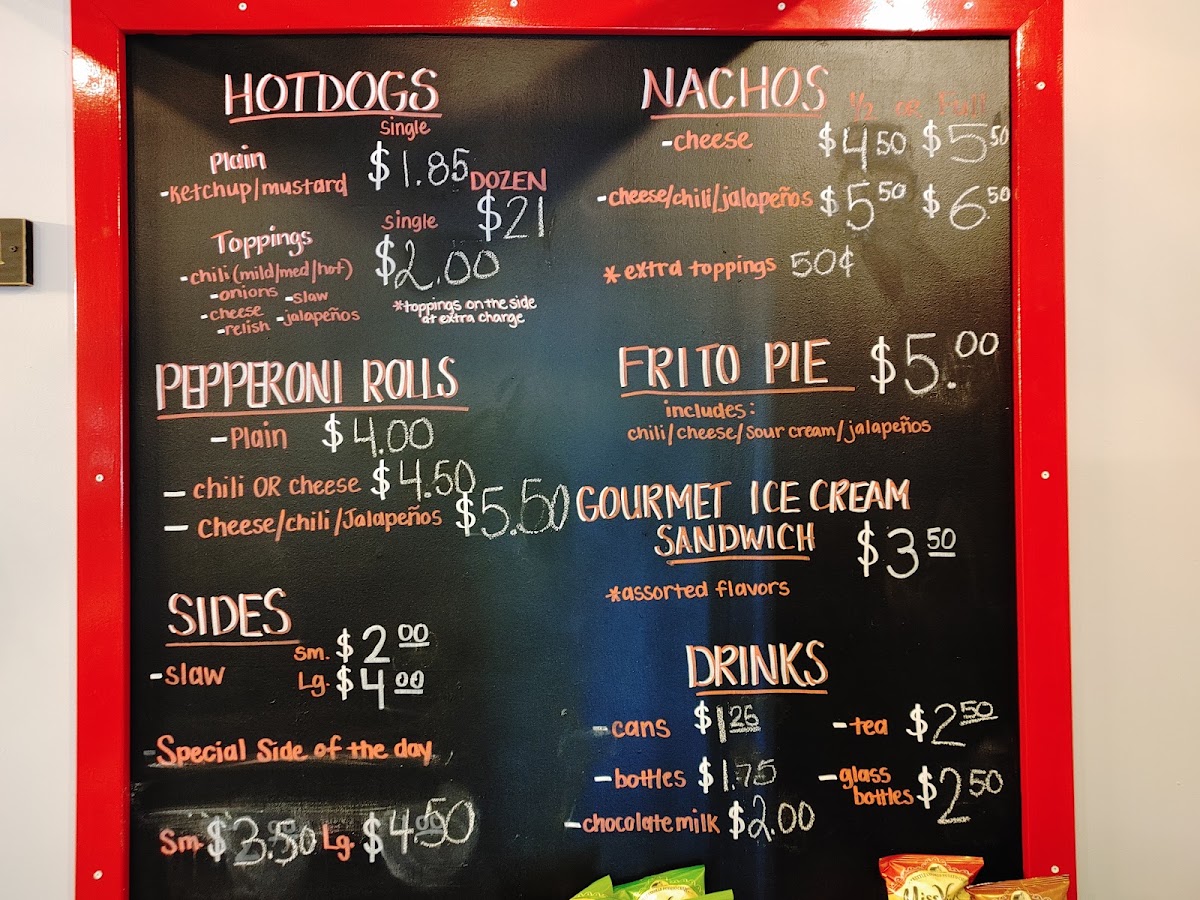 HOTDOGS
single
Plain
-Ketchup/mustard $1.85
DOZEN
$21
single
Toppings $2.00
-chili (mild/med/hot)
-onions -slaw
-cheese -jalapeños
-relish
*toppings on the side
at extra charge
PEPPERONI ROLLS
-Plain $4.00
- chili OR cheese $4.50
- Cheese/chili/Jalapeños $5.50
SIDES
-slaw Sm. $2 00
Lg. $4 00
-Special Side of the day
Sm $3.50 Lg. $4.50
NACHOS 1/2 or Full
-cheese $4 50 $5 50
-cheese/chili/jalapeños $5 50 $6.50
*extra toppings 50¢
FRITO PIE $5.00
includes:
chili/cheese/sour cream/jalapeños
GOURMET ICE CREAM
SANDWICH $3 50
*assorted flavors
DRINKS
-cans $1 25 -tea $2 50
-bottles $1.75 -glass bottles $2 50
-chocolate milk $2.00
Miss